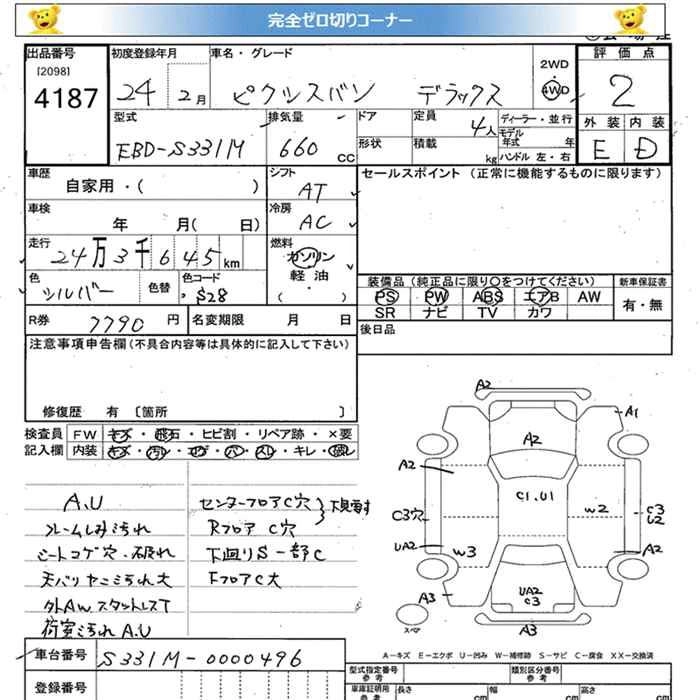 完全ゼロ切りコーナー
出品番号 初度登録年月 車名・グレード 評価点
[2098]
4187 24 2月 ピクシスバン デラックス 2WD 4WD 2
型式 排気量 ドア 定員 4人 ディーラー・並行 外装 内装
EBD-S331M 660 CC 形状 積載 kg モデル年式 年 ハンドル 左・右 E D
車歴 シフト セールスポイント (正常に機能するものに限ります)
自家用・( ) AT
車検 冷房
年 月( 日) AC
走行 燃料
24万3千645km ガソリン
色 色替 色コード 軽油
シルバー S28 ( )
装備品 (純正品に限り○をつけてください) 新車保証書
PS PW ABS エアB AW 有・無
SR ナビ TV カワ
R券 7790円 名変期限 月 日 後日品
注意事項申告欄 (不具合内容等は具体的に記入して下さい)
修復歴 有 〔箇所 〕
検査員 FW キズ・飛石・ヒビ割・リペア跡・×要
記入欄 内装
A.U センターフロアC穴
フレームしみ汚れ Rフロア C穴
シートコゲ穴・破れ 下廻りS一部C
天バリヤニ汚れ大 FフロアC大
外AwスタットレスT
荷室汚れA.U
A2
A1
A2
A2
C1.U1
C3穴
W2
C3
U2
UA2
W3
A2
UA2
C3
A3
A3
スペア
A-キズ E-エクボ U-凹み W-補修跡 S-サビ C-腐食 XX-交換済
車台番号 S331M-0000496
型式指定番号 参考 類別区分番号 参考
登録番号 車庫証明用 参考 長さ cm 幅 cm 高さ cm